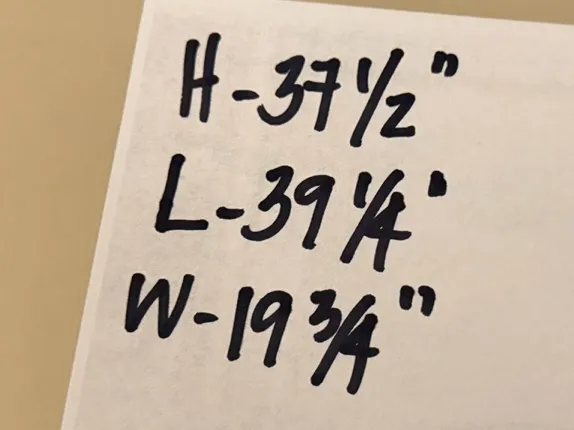 H-37 1/2"
L-39 1/4"
W-19 3/4"